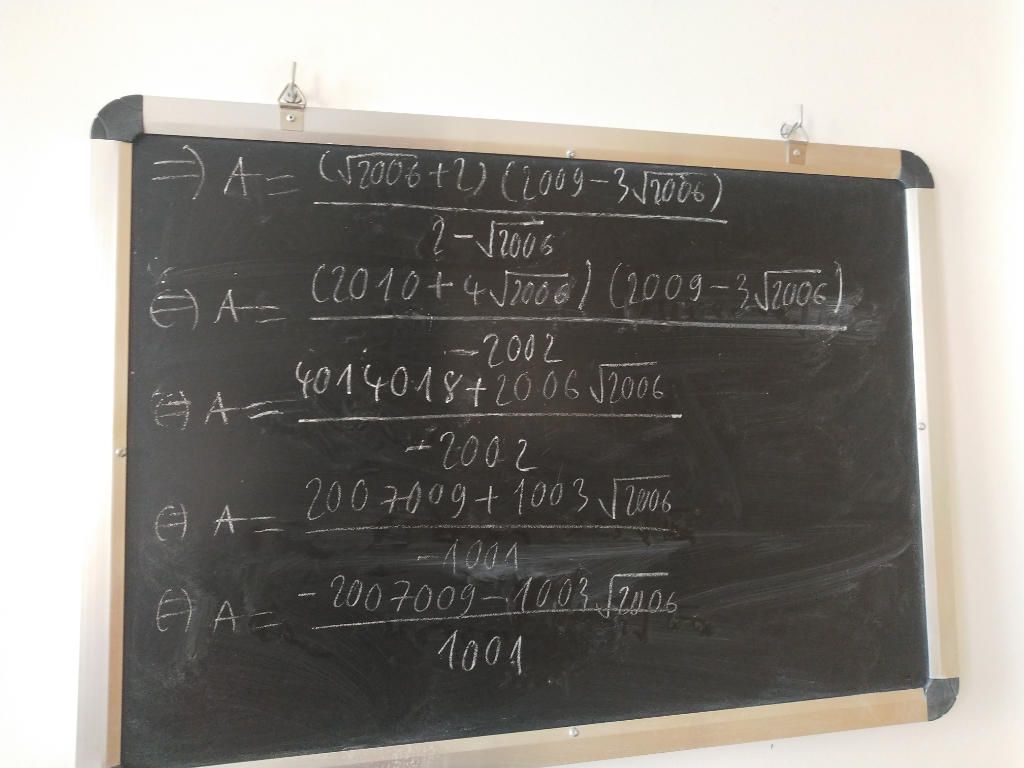 =) A = (√2006 + 2) (2009 - 3√2006)
2 - √2006
(=) A = (2010 + 4√2006) (2009 - 3√2006)
-2002
(=) A = 4014018 + 2006 √2006
-2002
(=) A = 2007009 + 1003 √2006
-1001
(=) A = -2007009 - 1003 √2006
1001